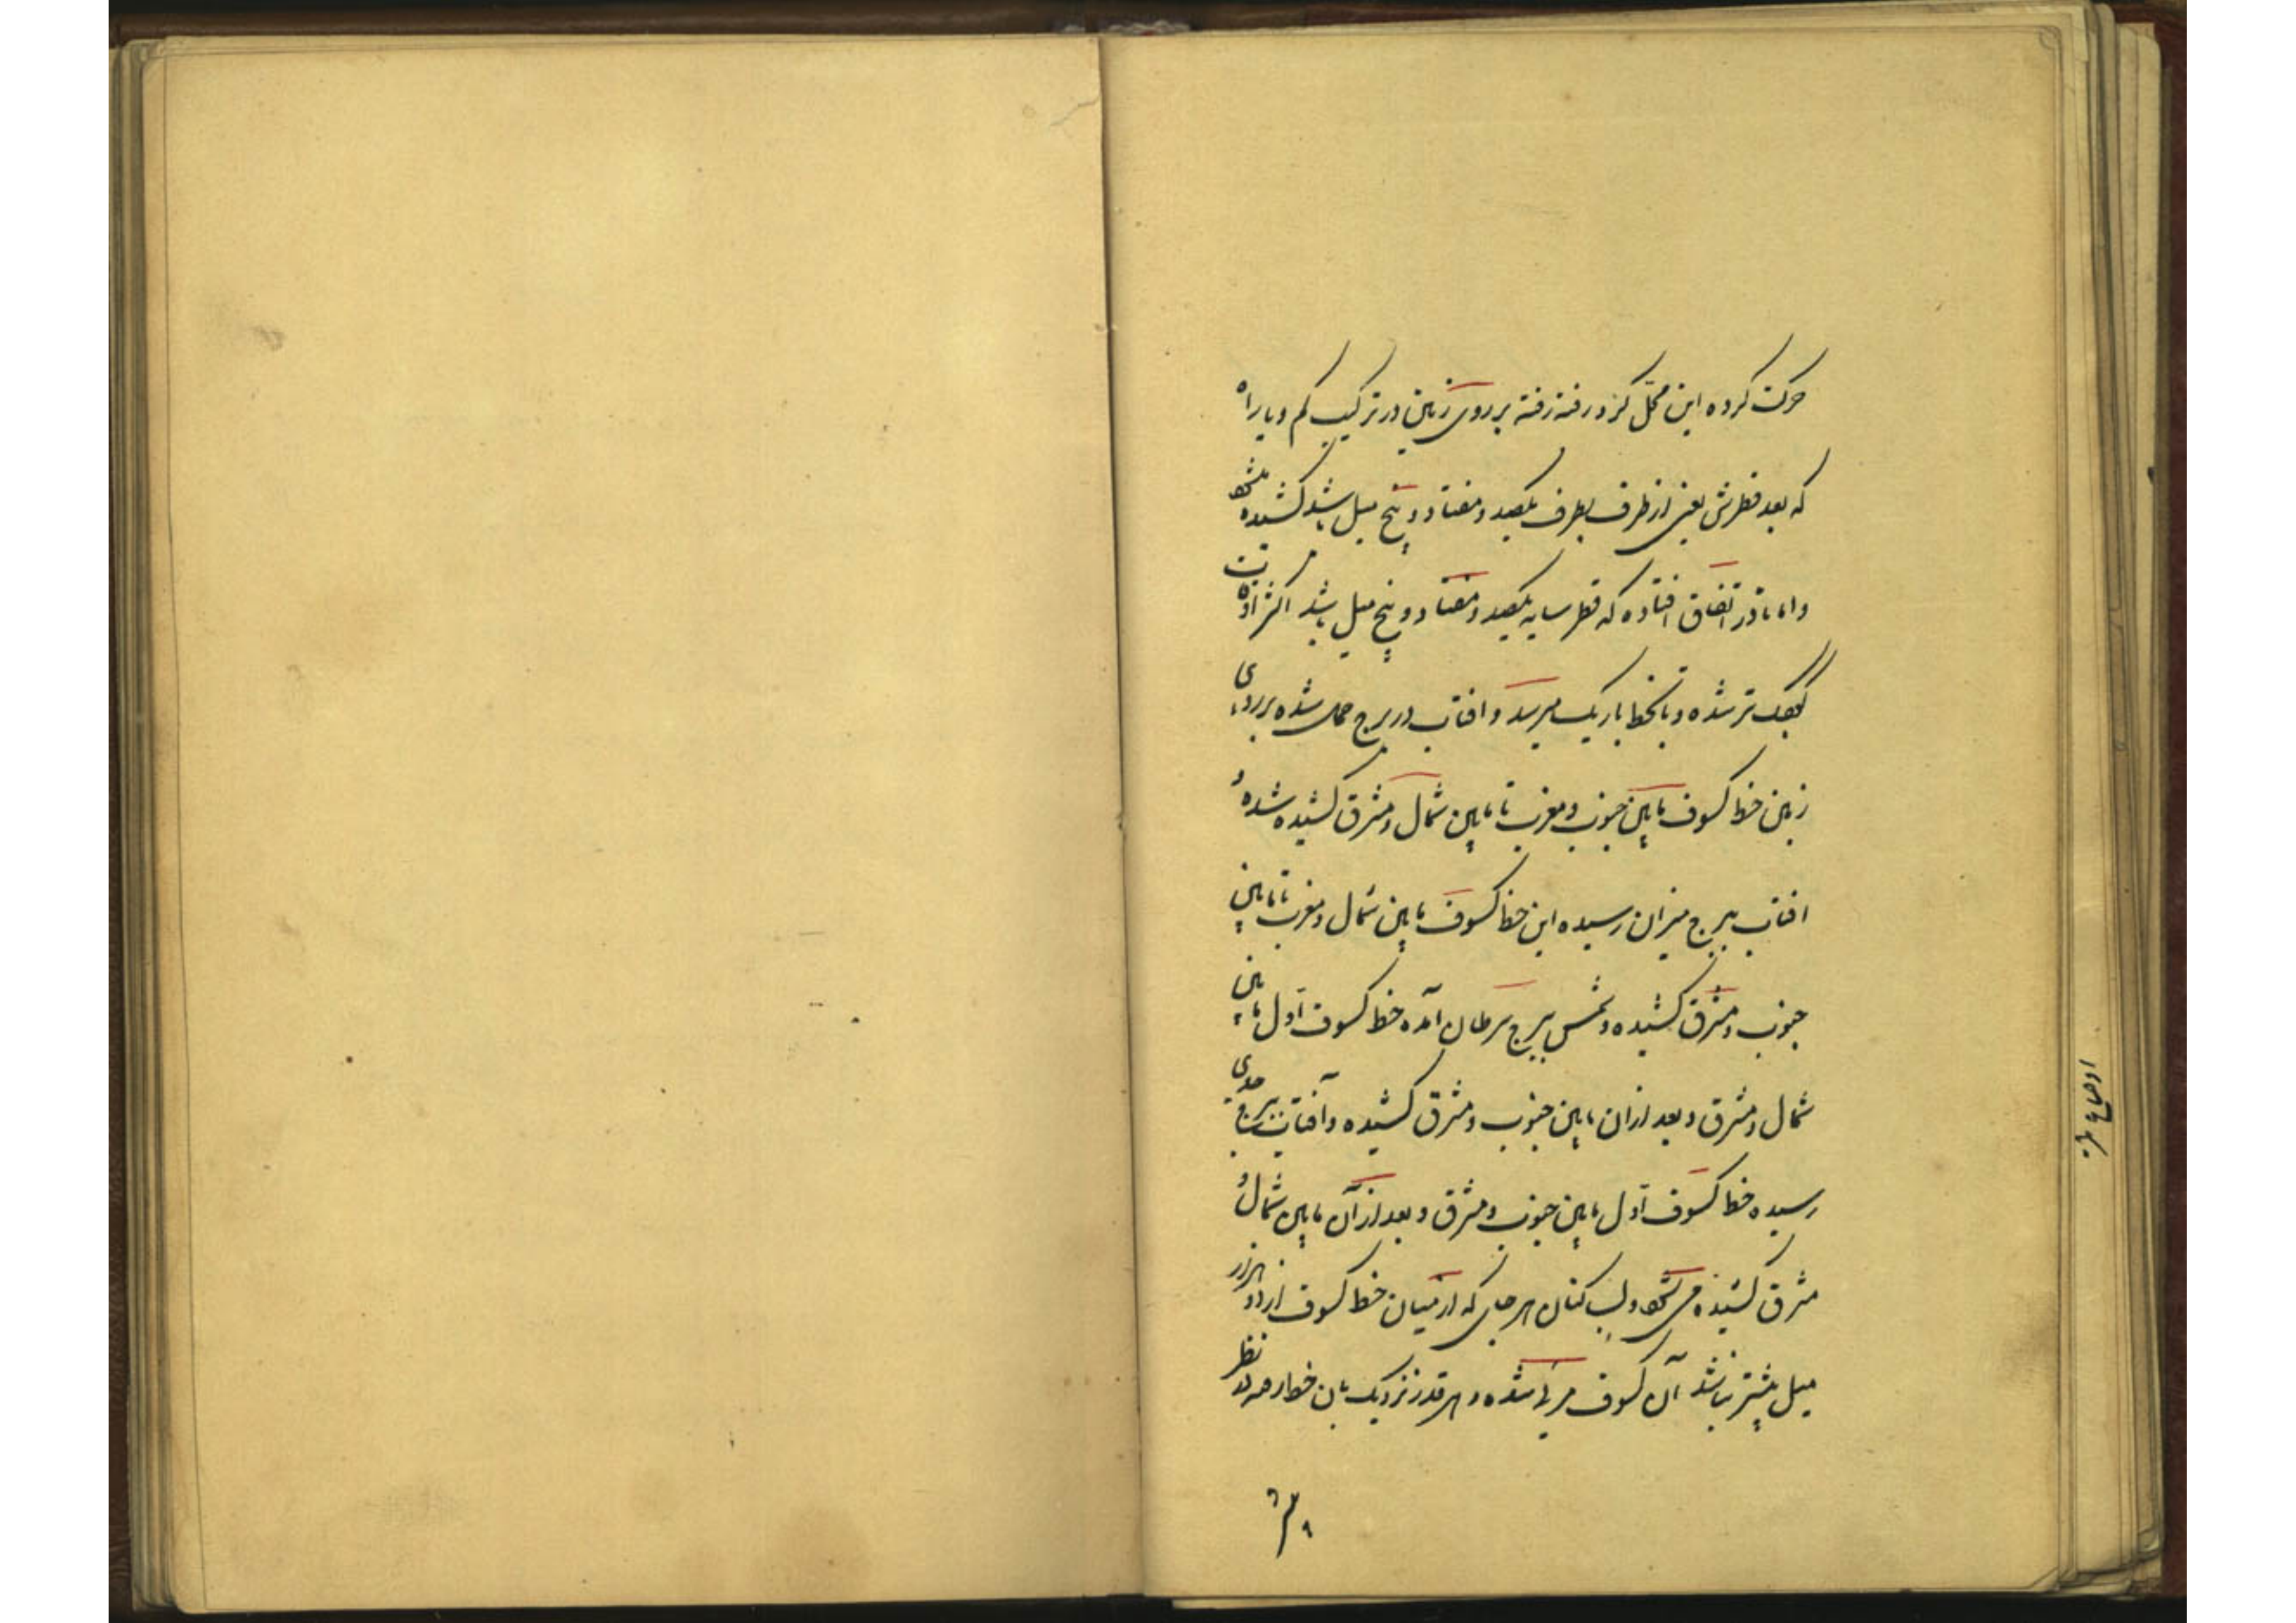 حرکت کرده این محل گزد رفته رفته بر روی زمین در ترکیب کم و یا راه
که بعد قطرش یعنی از طرف بطرف یکصد و هفتاد و پنج میل باشد کشیده میشود
و اما نادر اتفاق افتاده که قطر سایه یکصد و هفتاد و پنج میل باشد اکثر اوقات
کوچک تر شده و بخط باریک میرسد و افتاب در برج حمل شده بر روی
زمین خط کسوف مابین جنوب و مغرب تا مابین شمال و مشرق کشیده شده و
افتاب ببرج میزان رسیده این خط کسوف مابین شمال و مغرب تا مابین
جنوب و مشرق کشیده و شمس ببرج سرطان آمده خط کسوف اول مابین
شمال و مشرق و بعد ازان مابین جنوب و مشرق کشیده و آفتاب ببرج جدی
رسیده خط کسوف اول مابین جنوب و مشرق و بعد از آن مابین شمال و
مشرق کشیده می شود و لب کنان هر جای که از میان خط کسوف از دو هزار
میل بیشتر نباشد آن کسوف مرئی شده و هر قدر نزدیک بان خط رصد نظر